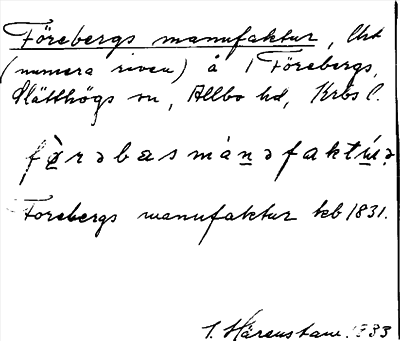 Förebergs manufaktur, Urt
(numera riven) å 1 Förebergs,
Slätthögs sn, Allbo hd, Krbs l.
Forebergs manufaktur kb 1831.
S. Härenstam. 1933